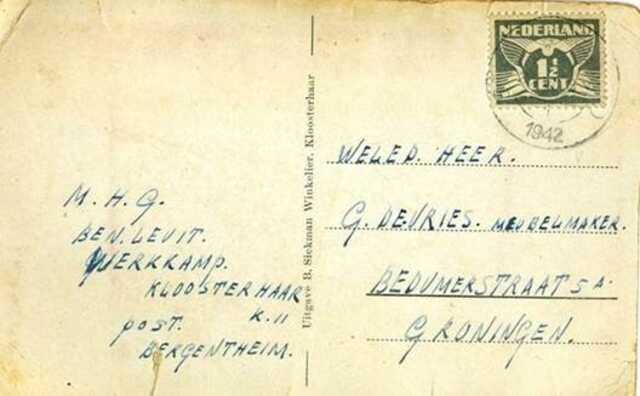 NEDERLAND
1½
CENT
1942
WELED. HEER.
G. DEVRIES. MEUBELMAKER.
BEDUMERSTRAAT 5A.
GRONINGEN.
Uitgave B. Siekman Winkelier, Kloosterhaar
M. H. G.
BEN. LEVIT.
WERKKAMP.
KLOOSTERHAAR
K. 11
POST.
BERGENTHEIM.